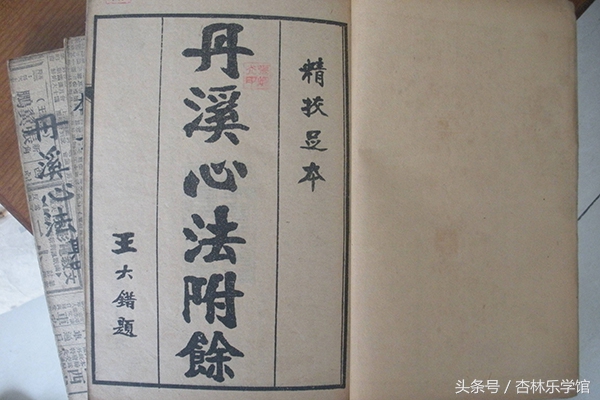 精校足本
丹溪心法附餘
王大錯題
丹溪心法
头条号／杏林乐学馆